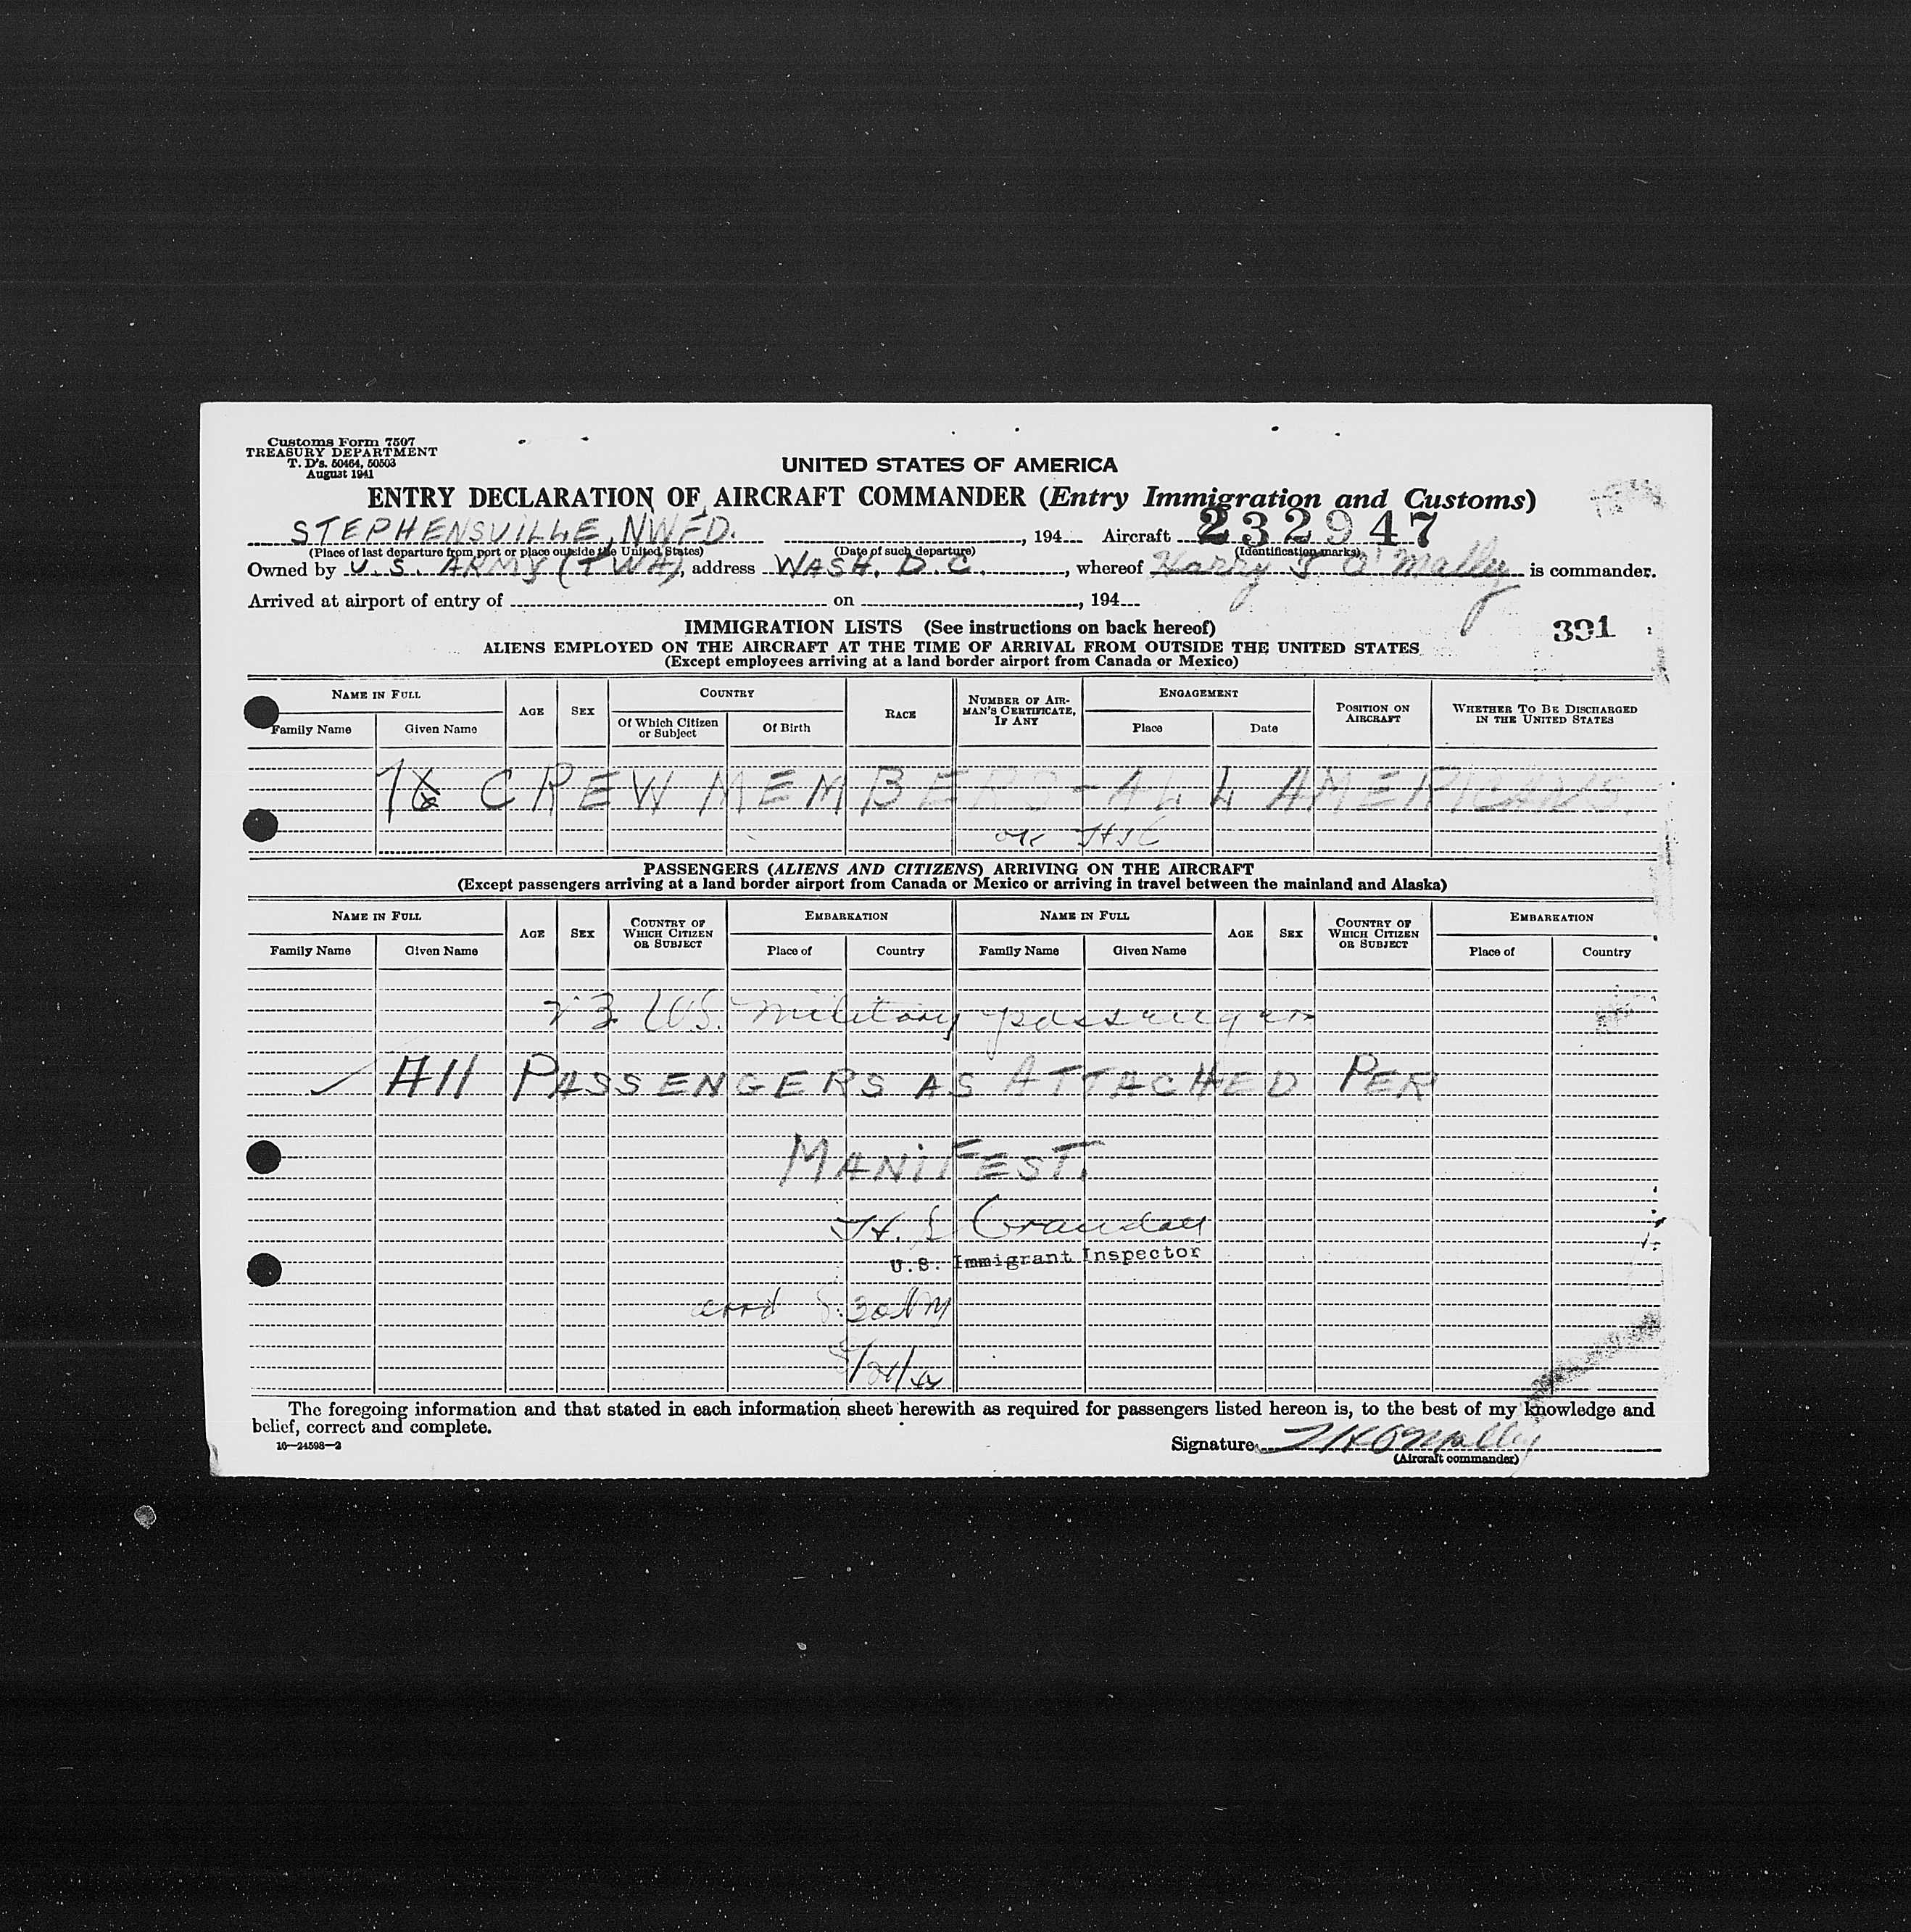 Customs Form 7507
TREASURY DEPARTMENT
T. D's. 50464, 50503
August 1941
UNITED STATES OF AMERICA
ENTRY DECLARATION OF AIRCRAFT COMMANDER (Entry Immigration and Customs)
STEPHENSVILLE, NWFD. , 194 Aircraft 232947
(Place of last departure from port or place outside the United States) (Date of such departure) (Identification marks)
Owned by U.S. ARMY (TWA), address WASH. D.C. , whereof Harry J O'Mally is commander.
Arrived at airport of entry of on , 194
IMMIGRATION LISTS (See instructions on back hereof)
391
ALIENS EMPLOYED ON THE AIRCRAFT AT THE TIME OF ARRIVAL FROM OUTSIDE THE UNITED STATES
(Except employees arriving at a land border airport from Canada or Mexico)
NAME IN FULL AGE SEX COUNTRY RACE NUMBER OF AIRMAN'S CERTIFICATE, IF ANY ENGAGEMENT POSITION ON AIRCRAFT WHETHER TO BE DISCHARGED IN THE UNITED STATES
Family Name Given Name Of Which Citizen or Subject Of Birth Place Date
CREW MEMBERS - ALL AMERICANS.
PASSENGERS (ALIENS AND CITIZENS) ARRIVING ON THE AIRCRAFT
(Except passengers arriving at a land border airport from Canada or Mexico or arriving in travel between the mainland and Alaska)
NAME IN FULL AGE SEX COUNTRY OF WHICH CITIZEN OR SUBJECT EMBARKATION NAME IN FULL AGE SEX COUNTRY OF WHICH CITIZEN OR SUBJECT EMBARKATION
Family Name Given Name Place of Country Family Name Given Name Place of Country
23 US. military passengers
All PASSENGERS AS ATTACHED PER
MANIFEST.
H. S Crandall
U.S. Immigrant Inspector
arrd 8:30 AM
The foregoing information and that stated in each information sheet herewith as required for passengers listed hereon is, to the best of my knowledge and
belief, correct and complete.
16—24598—2
Signature O'Mally
(Aircraft commander)